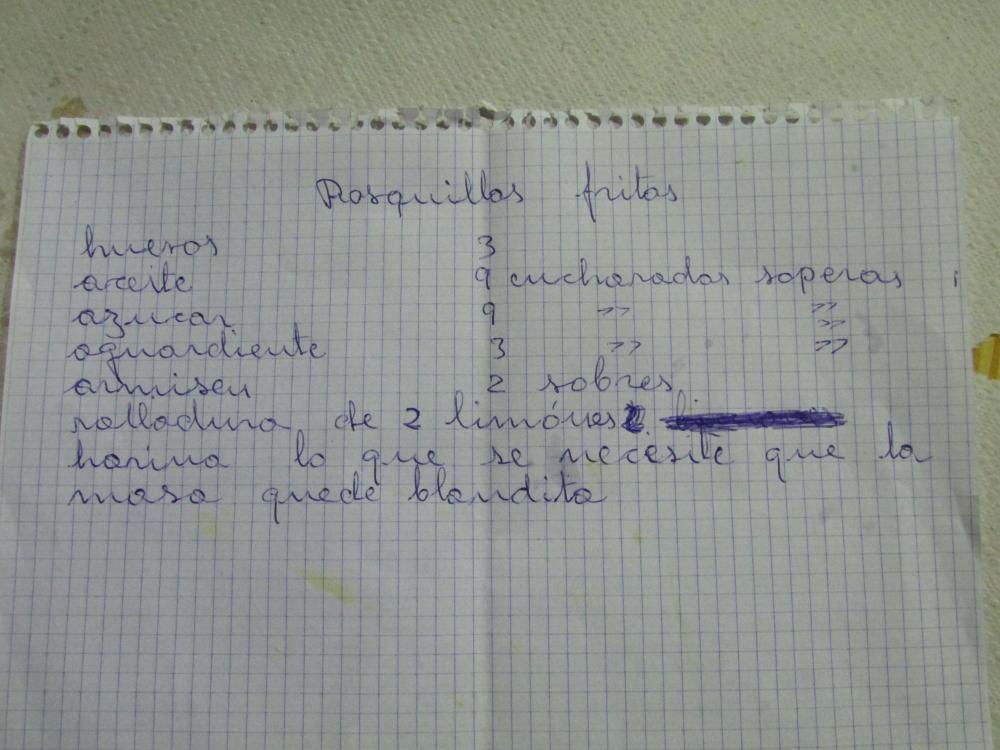 Rosquillas fritas
huevos 3
aceite 9 cucharadas soperas
azucar 9 >> >>
>>
aguardiente 3 >> >>
armisen 2 sobres
ralladura de 2 limónes
harina lo que se necesite que la
masa quede blandita